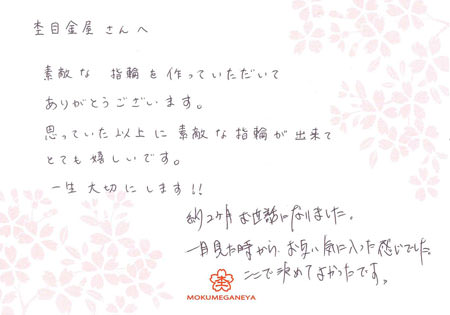 杢目金屋さんへ
素敵な 指輪を作っていただいて
ありがとうございます。
思っていた以上に素敵な指輪が出来て
とても嬉しいです。
一生大切にします!!
約2ヶ月お世話になりました。
一目見た時から、お互い気に入った感じでした。
ここで決めてよかったです。
杢
MOKUMEGANEYA